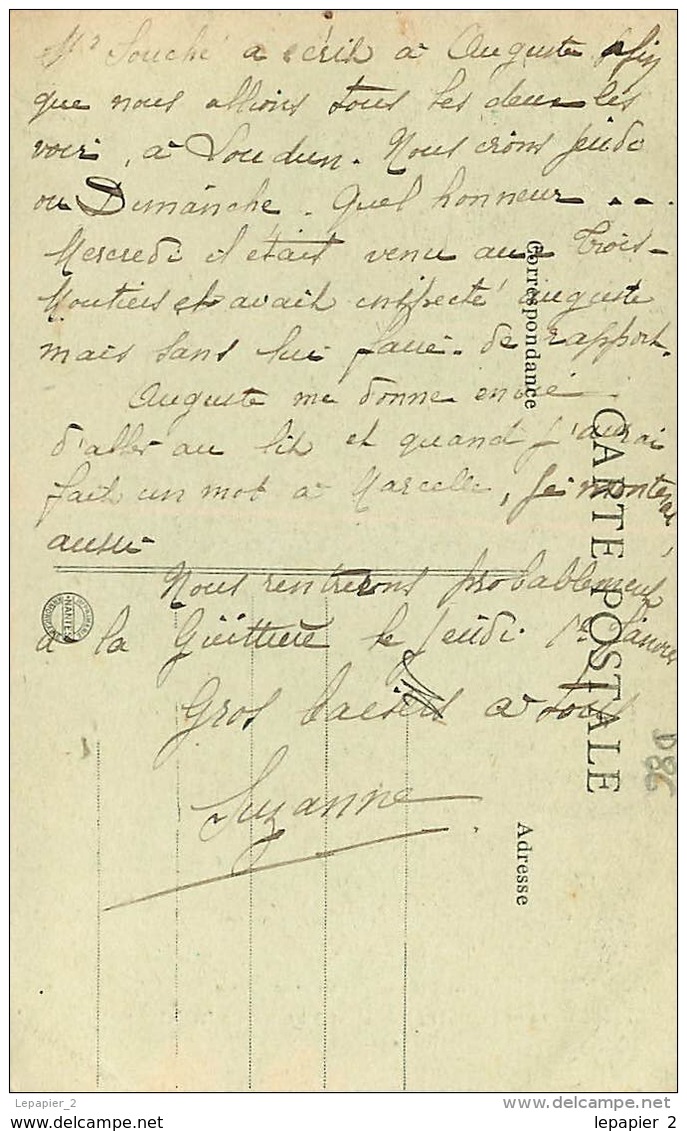 Mr Souché a écrit à Auguste afin
que nous allions tous les deux les
voir, à Loudun. Nous irons Jeudi
ou Dimanche. Quel honneur ...
Mercredi il était venu aux Trois-
Moutiers et avait inspecté Auguste
mais sans lui faire de rapport.
Auguste me donne envie
d'aller au lit et quand j'aurai
fait un mot à Marcelle, je monterai
aussi
Nous rentrerons probablement
à la le Jeudi 1er Janvier
Gros baisers à tous
Suzanne
CARTE POSTALE
Correspondance
Adresse
NANTES
D86
Lepapier_2
© delcampe.net
lepapier_2